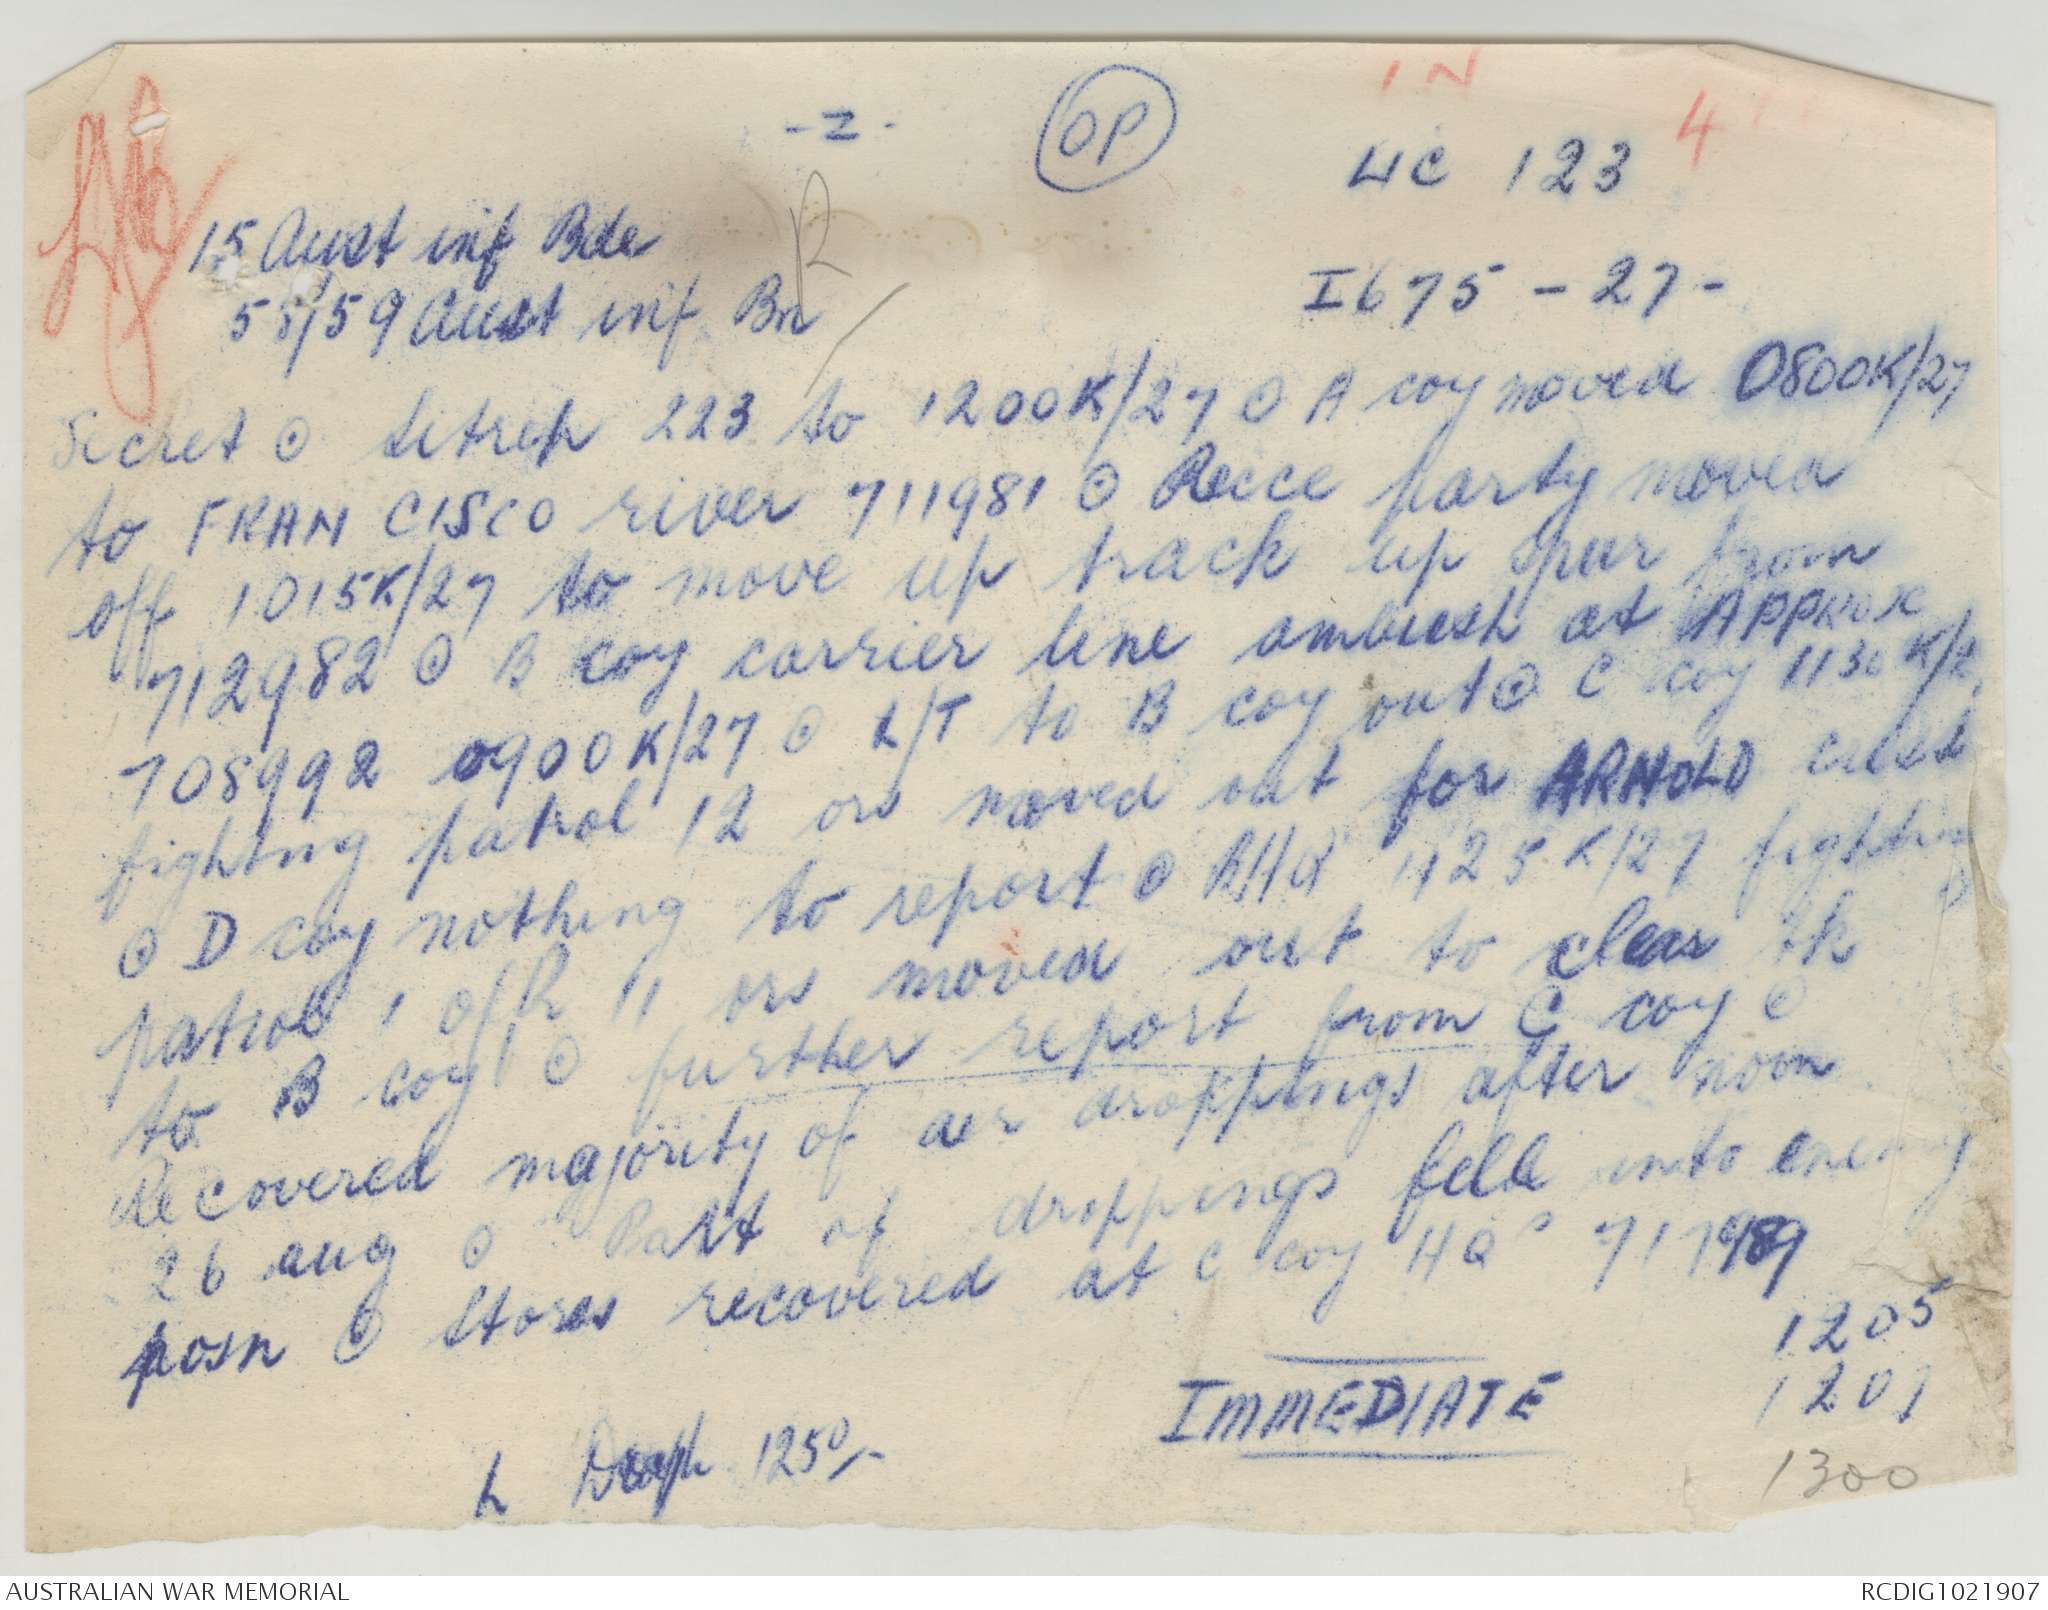 IN
4
- Z -
OP
WC 123
15 Aust inf Bde
58/59 Aust inf Bn
R
I675 - 27 -
Secret ⊙ Sitrep 223 to 1200K/27 ⊙ A coy moved 0800K/27
to FRANCISCO river 711981 ⊙ Recce party moved
off 1015K/27 to move up track up spur from
712982 ⊙ B coy carrier line ambush at APPROX
708992 0900K/27 ⊙ L/T to B coy out ⊙ C coy 1130K/2
fighting patrol 12 ors moved out for ARNOLD crest
⊙ D coy nothing to report ⊙ BHQ 1125K/27 fighting
patrol 1 offr 11 ors moved out to clear tk
to B coy ⊙ further report from C coy ⊙
Recovered majority of aer droppings after noon
26 aug ⊙ Part of droppings fell into enemy
posn ⊙ Stores recovered at C coy HQ 717989
1205
IMMEDIATE
1201
L Draph 1250/-
1300
AUSTRALIAN WAR MEMORIAL
RCDIG1021907